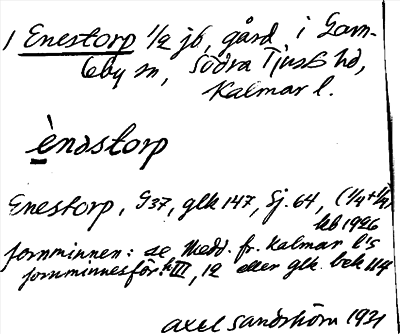 1 Enestorp 1/2 jb, gård i Gam-
leby sn, Södra Tjusts hd,
Kalmar l.
ènǝstorp
Enestorp, G37, glk 147, Sj. 64, (1/4+1/4)
kb 1926
fornminnen: se Medd. fr. Kalmar l's
fornminnesför. III, 12 eller glk. bek 114
Axel Sandström 1931